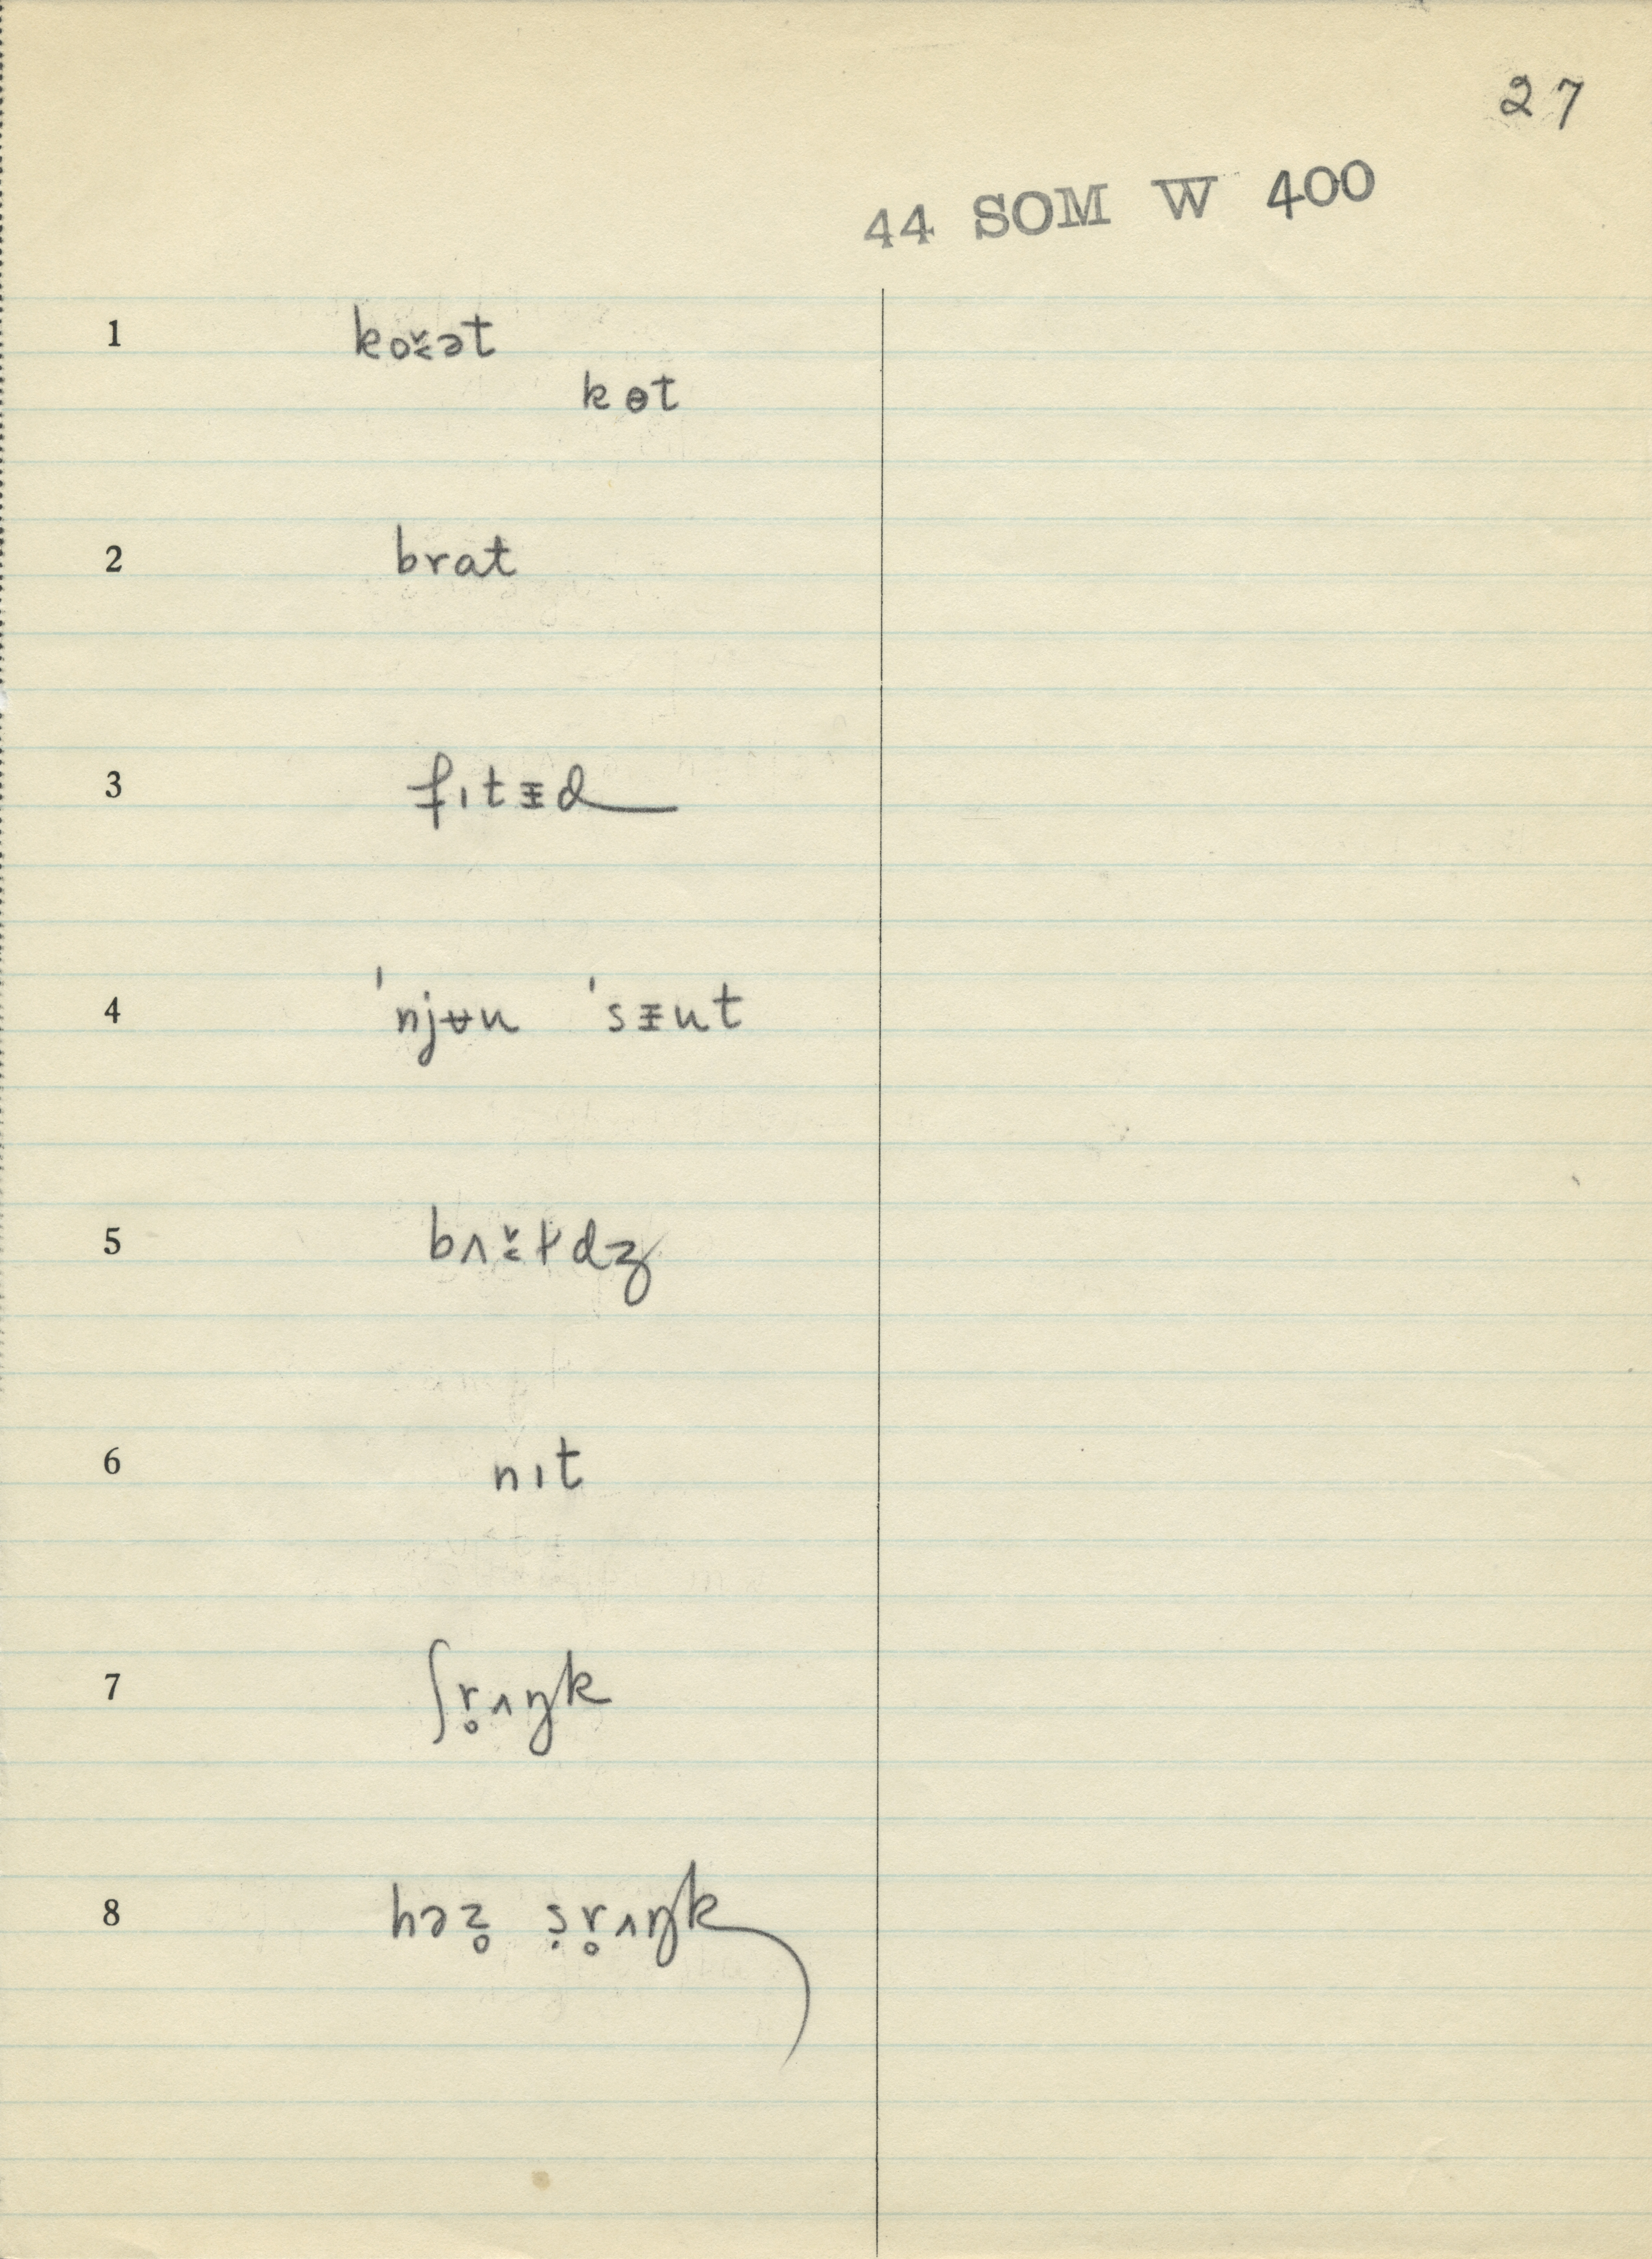 27
44 SOM W 400
1 ko˯̌ət
kɵt
2 brat
3 fɪtᵻd
4 ˈnjʉu ˈsᵻut
5 bʌ˯̌ɫdʒ
6 nɪt
7 ʃr̥ʌŋk
8 həz̥ ṣr̥ʌŋk